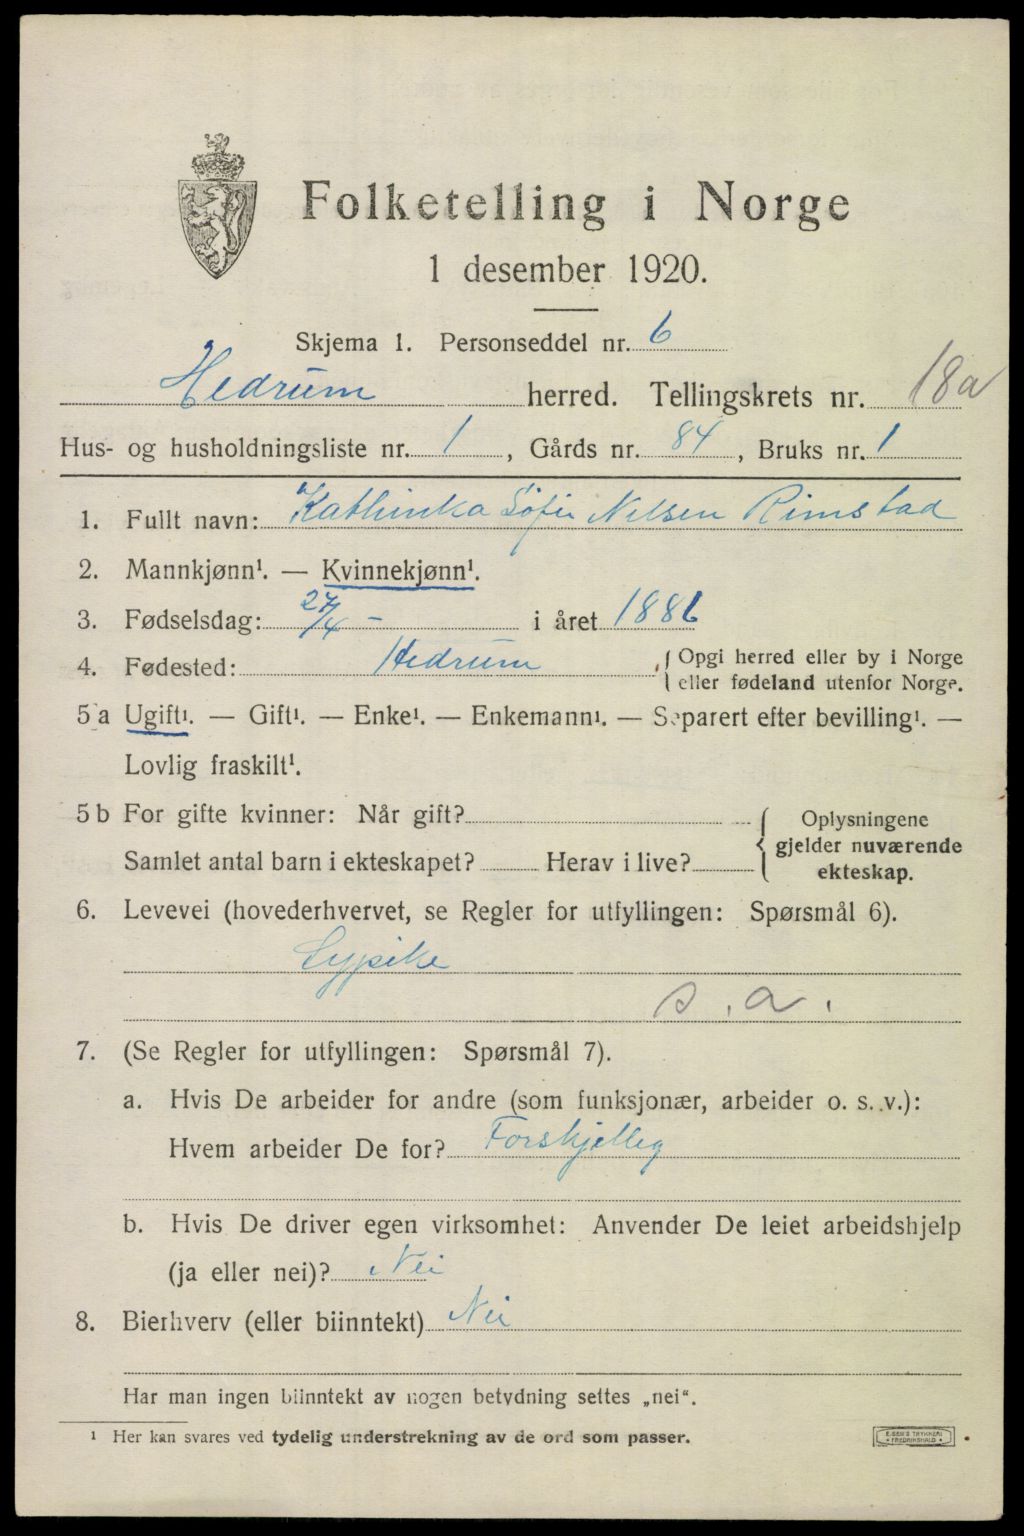 Folketelling i Norge
1 desember 1920.
Skjema 1. Personseddel nr. 6
Hedrum herred. Tellingskrets nr. 18a
Hus- og husholdningsliste nr. 1, Gårds nr. 84, Bruks nr. 1
1. Fullt navn: Kathinka Sofie Nilsen Rimstad
2. Mannkjønn¹. — Kvinnekjønn¹.
3. Fødselsdag: 27/4 - i året 1886
4. Fødested: Hedrum { Opgi herred eller by i Norge
eller fødeland utenfor Norge.
5 a Ugift¹. — Gift¹. — Enke¹. — Enkemann¹. — Separert efter bevilling¹. —
Lovlig fraskilt¹.
5 b For gifte kvinner: Når gift?
Samlet antal barn i ekteskapet? Herav i live?
Oplysningene
gjelder nuværende
ekteskap.
6. Levevei (hovederhvervet, se Regler for utfyllingen: Spørsmål 6).
Sypike
s.a.
7. (Se Regler for utfyllingen: Spørsmål 7).
a. Hvis De arbeider for andre (som funksjonær, arbeider o. s. v.):
Hvem arbeider De for? Forskjellig
b. Hvis De driver egen virksomhet: Anvender De leiet arbeidshjelp
(ja eller nei)? Nei
8. Bierhverv (eller biinntekt) Nei
Har man ingen biinntekt av nogen betydning settes „nei“.
¹ Her kan svares ved tydelig understrekning av de ord som passer.
E. SEM'S TRYKKERI
• FREDRIKSHALD •